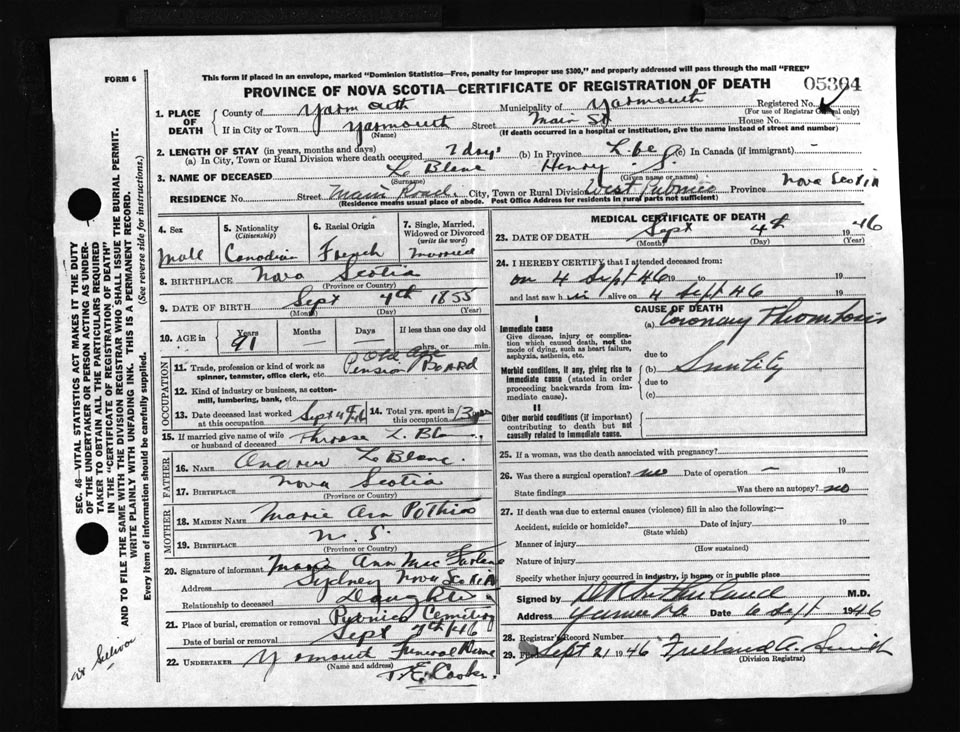 FORM 6
This form if placed in an envelope, marked "Dominion Statistics—Free, penalty for improper use $300," and properly addressed will pass through the mail "FREE"
PROVINCE OF NOVA SCOTIA—CERTIFICATE OF REGISTRATION OF DEATH
05304
1. PLACE OF DEATH
County of Yarmouth Municipality of Yarmouth Registered No.
(For use of Registrar General only)
If in City or Town Yarmouth Street Main St House No.
(Name) (If death occurred in a hospital or institution, give the name instead of street and number)
2. LENGTH OF STAY (in years, months and days)
(a) In City, Town or Rural Division where death occurred 7 days (b) In Province Life (c) In Canada (if immigrant) -
3. NAME OF DECEASED Le Blanc Henry S.
(Surname) (Given name or names)
RESIDENCE No. Street Main Road City, Town or Rural Division West Pubnico Province Nova Scotia
(Residence means usual place of abode. Post Office Address for residents in rural parts not sufficient)
4. Sex
Male
5. Nationality
(Citizenship)
Canadian
6. Racial Origin
French
7. Single, Married, Widowed or Divorced
(write the word)
Married
8. BIRTHPLACE Nova Scotia
(Province or Country)
9. DATE OF BIRTH Sept 4th 1855
(Month) (Day) (Year)
10. AGE in
Years Months Days If less than one day old
91 hrs. or min.
OCCUPATION
11. Trade, profession or kind of work as spinner, teamster, office clerk, etc. Old Age Pension Board
12. Kind of industry or business, as cotton-mill, lumbering, bank, etc.
13. Date deceased last worked at this occupation Sept
14. Total yrs. spent in this occupation
15. If married give name of wife or husband of deceased
FATHER
16. NAME Andrew Le Blanc.
17. BIRTHPLACE Nova Scotia
(Province or Country)
MOTHER
18. MAIDEN NAME Marie Ann Pothier
19. BIRTHPLACE N. S.
(Province or Country)
20. Signature of informant Marie Ann Mac Farlane
Address Sydney Nova Scotia
Relationship to deceased Daughter
21. Place of burial, cremation or removal Pubnico Cemetery
Date of burial or removal Sept 7th/46
22. UNDERTAKER Yarmouth Funeral Home
(Name and address)
T. E. Cooke.
MEDICAL CERTIFICATE OF DEATH
23. DATE OF DEATH Sept 4th 1946
(Month) (Day) (Year)
24. I HEREBY CERTIFY that I attended deceased from:
on 4 Sept 46 19 to 19
and last saw him alive on 4 Sept 46 19
CAUSE OF DEATH
I
Immediate cause
Give disease, injury or complication which caused death, not the mode of dying, such as heart failure, asphyxia, asthenia, etc.
(a) Coronary Thrombosis
due to
Morbid conditions, if any, giving rise to immediate cause (stated in order proceeding backwards from immediate cause).
(b) Senility
due to
(c)
II
Other morbid conditions (if important) contributing to death but not causally related to immediate cause.
25. If a woman, was the death associated with pregnancy?
26. Was there a surgical operation? no Date of operation - 19
State findings Was there an autopsy? no
27. If death was due to external causes (violence) fill in also the following:—
Accident, suicide or homicide? Date of injury 19
(State which)
Manner of injury
(How sustained)
Nature of injury
Specify whether injury occurred in industry, in home, or in public place
Signed by M.D.
Address Yarmouth Date 6 Sept 1946
28. Registrar's Record Number
29. Filed Sept 21 1946 Freeland A. Smith
(Division Registrar)
SEC. 46—VITAL STATISTICS ACT MAKES IT THE DUTY
OF THE UNDERTAKER OR PERSON ACTING AS UNDER-
TAKER TO OBTAIN ALL THE PARTICULARS REQUIRED
IN THE "CERTIFICATE OF REGISTRATION OF DEATH"
AND TO FILE THE SAME WITH THE DIVISION REGISTRAR WHO SHALL ISSUE THE BURIAL PERMIT.
WRITE PLAINLY WITH UNFADING INK. THIS IS A PERMANENT RECORD.
Every item of information should be carefully supplied. (See reverse side for instructions.)